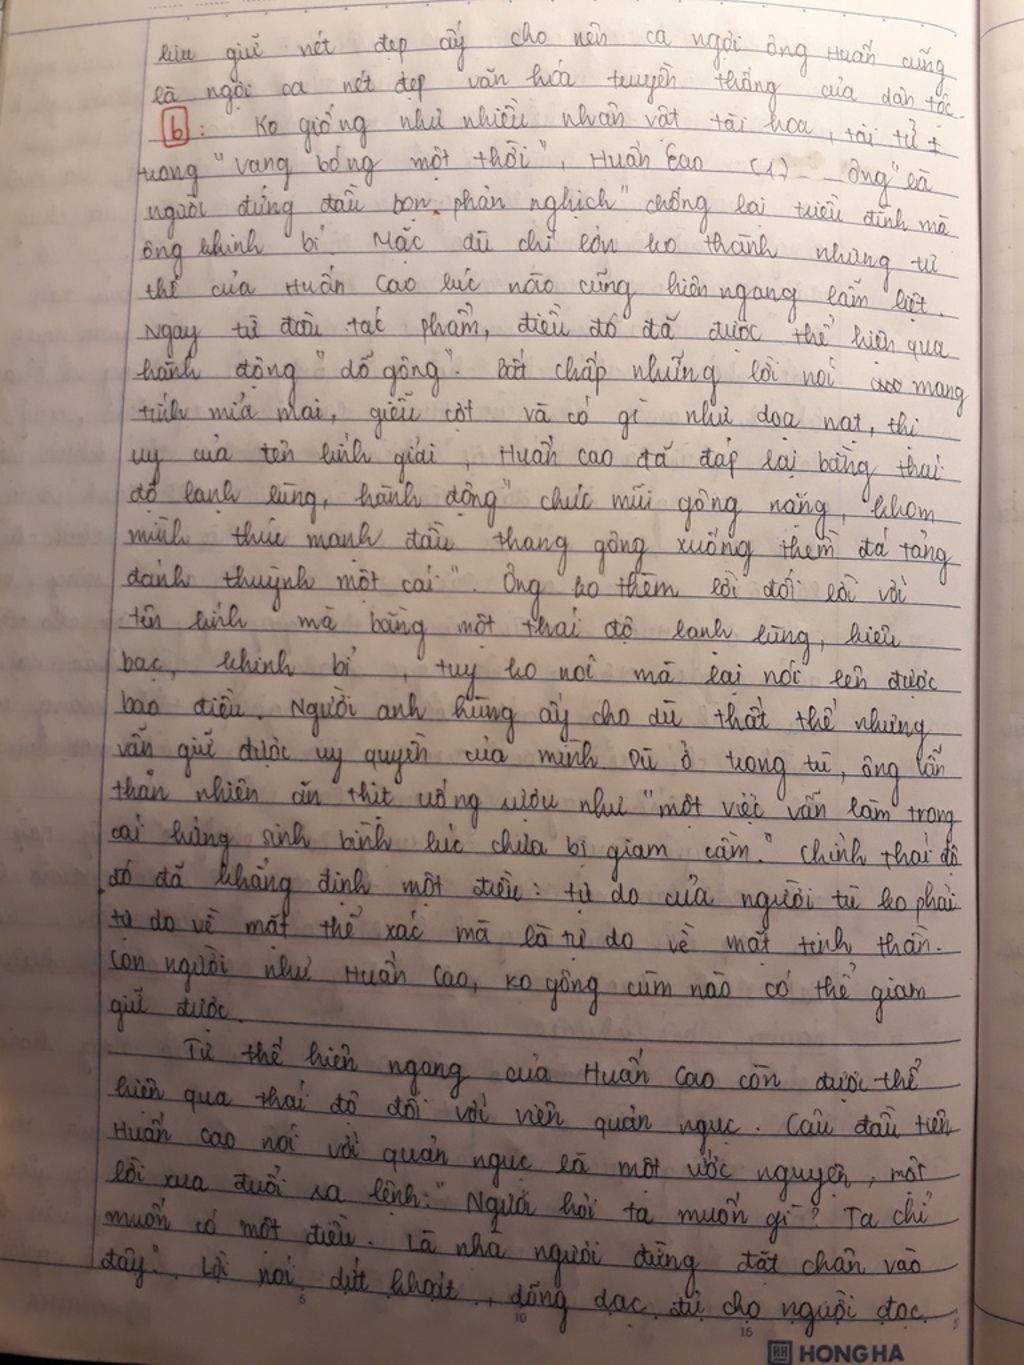 lưu giữ nét đẹp ấy cho nên ca ngợi ông Huấn cũng
là ngợi ca nét đẹp văn hóa truyền thống của dân tộc.
b: Ko giống như nhiều nhân vật tài hoa, tài tử +
trong "vang bóng một thời", Huấn Cao (1) - - ông "là
người đứng đầu bọn phản nghịch" chống lại triều đình mà
ông khinh bỉ. Mặc dù chí lớn ko thành nhưng tư
thế của Huấn Cao lúc nào cũng hiên ngang lẫm liệt.
Ngay từ đầu tác phẩm, điều đó đã được thể hiện qua
hành động "dỗ gông". Bất chấp những lời nói mang
tính mỉa mai, giễu cợt và có gì như dọa nạt, thị
uy của tên lính giải, Huấn Cao đã đáp lại bằng thái
độ lạnh lùng, hành động "chúc mũi gông nặng, khom
mình thúc mạnh đầu thang gông xuống thềm đá tảng
đánh thuỳnh một cái". Ông ko thèm lời đối lời với
tên lính mà bằng một thái độ lạnh lùng, khinh
bạc, khinh bỉ, tuy ko nói mà lại nói lên được
bao điều. Người anh hùng ấy cho dù thất thế nhưng
vẫn giữ được uy quyền của mình. Dù ở trong tù, ông vẫn
thản nhiên ăn thịt uống rượu như "một việc vẫn làm trong
cái hứng sinh bình lúc chưa bị giam cầm." Chính thái độ
đó đã khẳng định một điều: tự do của người tù ko phải
tự do về mặt thể xác mà là tự do về mặt tinh thần.
Con người như Huấn Cao, ko gông cùm nào có thể giam
giữ được.
Tư thế hiên ngang của Huấn Cao còn được thể
hiện qua thái độ đối với viên quản ngục. Câu đầu tiên
Huấn Cao nói với quản ngục là một ước nguyện, một
lời xua đuổi, ra lệnh: "Ngươi hỏi ta muốn gì? Ta chỉ
muốn có một điều. Là nhà ngươi đừng đặt chân vào
đây". Lời nói dứt khoát, dõng dạc đủ cho người đọc
5 10 15
HONG HA